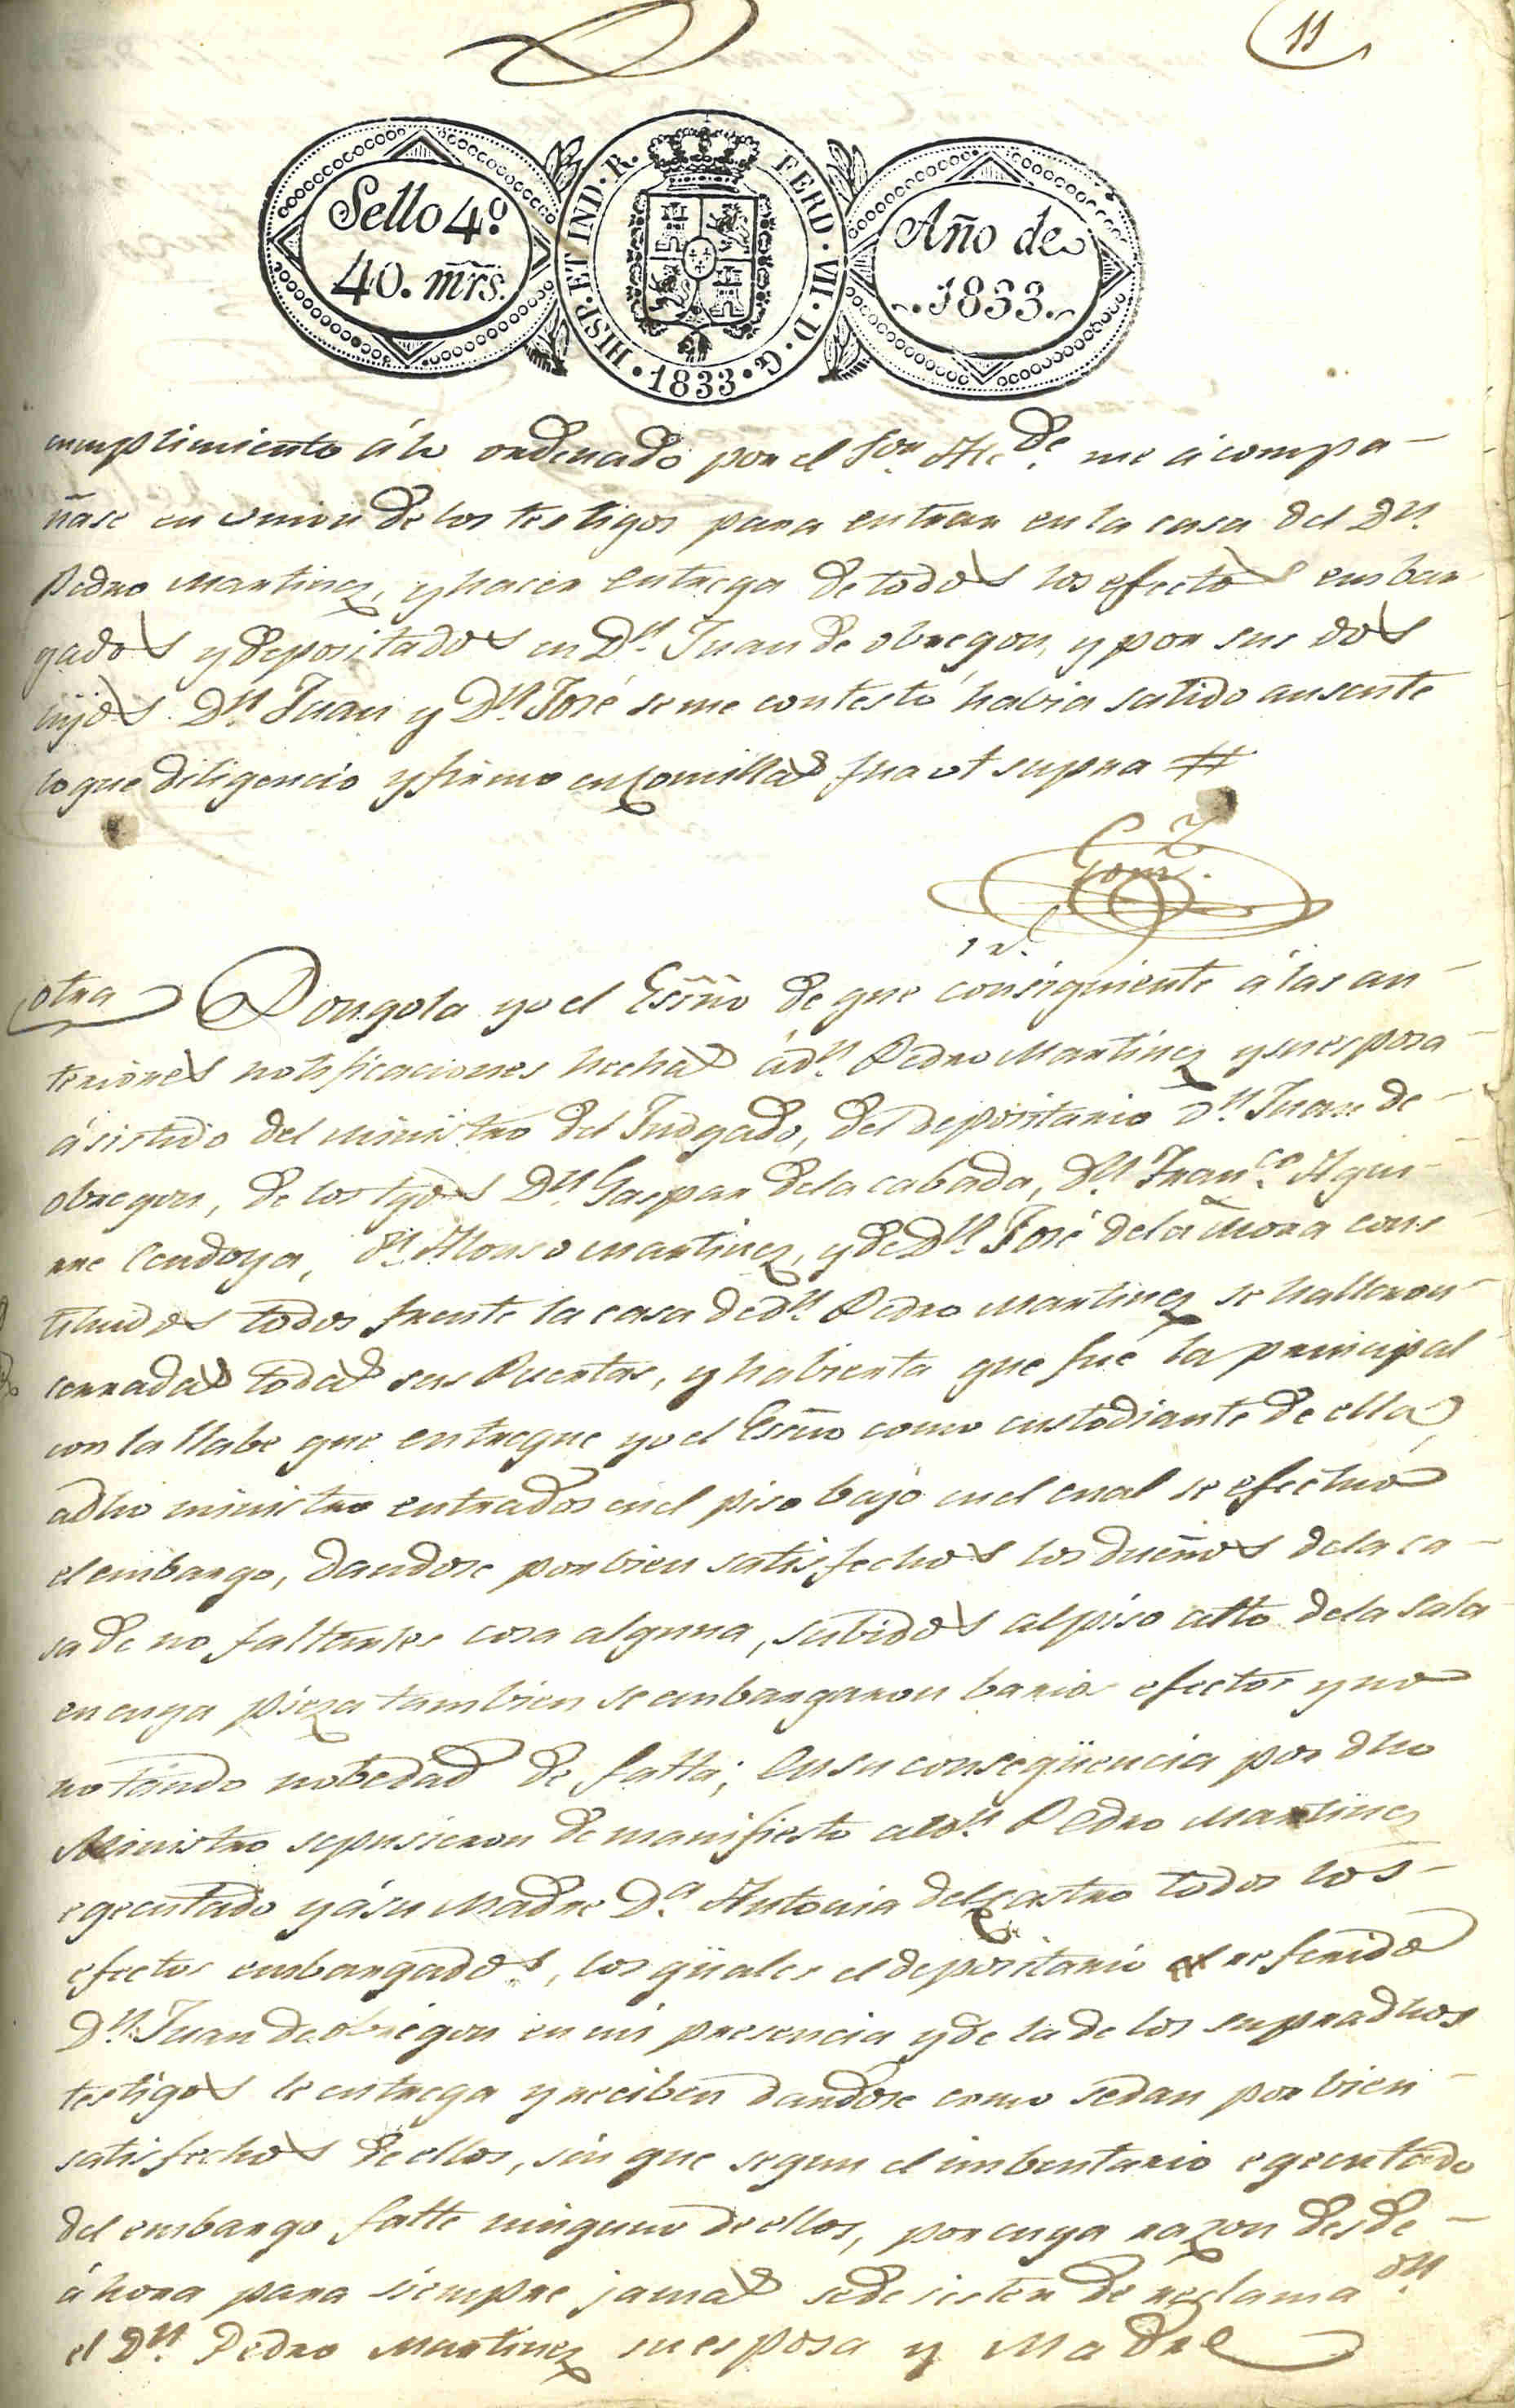 11
Sello 4º
40. mrs.
HISP. ET IND. R. FERD. VII. D. G. 1833
Año de
1833.
cumplimiento á lo ordenado por el Sor. Alcde. me ácompa-
ñase en union de los testigos para entrar en la casa del Dn.
Pedro Martinez, y hacer entrega de todos los efectos embar
gados y depositados en Dn. Juan de obregon, y por sus dos
hijos Dn. Juan y Dn. José se me contestó, habia salido ausente
lo que diligencio y firmo en Comillas fha ut supra #
Gomz.
otra Pongola yo el Esmo de que consiguiente á las an-
teriores notificaciones hechas á dn. Pedro Martinez y su esposa
ásistido del ministro del Judgado, del depositario Dn. Juan de-
obregon, de los tgos Dn. Gaspar de la cabada, Dn. Franco. Agui-
rre Cendoya, Dn. Alonso Martinez, y de Dn. José de la Mora cons
tituidos todos frente la casa de dn. Pedro Martinez se hallaron-
cerradas todas sus Puertas, y habierta que fué la principal
con la llabe que entregue yo el Esmo como custodiante de ella
a dho ministro entrados en el piso bajo en el cual se efectuó
el embargo, dandose por bien satisfechos los dueños de la ca-
sa de no faltarles cosa alguna, subidos al piso alto de la sala
en cuya pieza tambien se embargaron barios efectos y no
notando nobedad de falta; en su conseqüencia por dho
Ministro se pusieron de manifiesto al dn. Pedro Martinez
egecutado y á su Madre Da. Antonia del Castro todos los-
efectos embargados, los qüales el depositario el referido
Dn. Juan de obregon en mi presencia y de la de los supradhos
testigos le entrega y reciben dandose como se dan por bien-
satisfechos de ellos, sin que segun el imbentario egecutado
del embargo falte ninguno de ellos, por cuya razon desde-
áhora para siempre jamas se desisten de reclamaon.
el Dn. Pedro Martinez su esposa y Madre